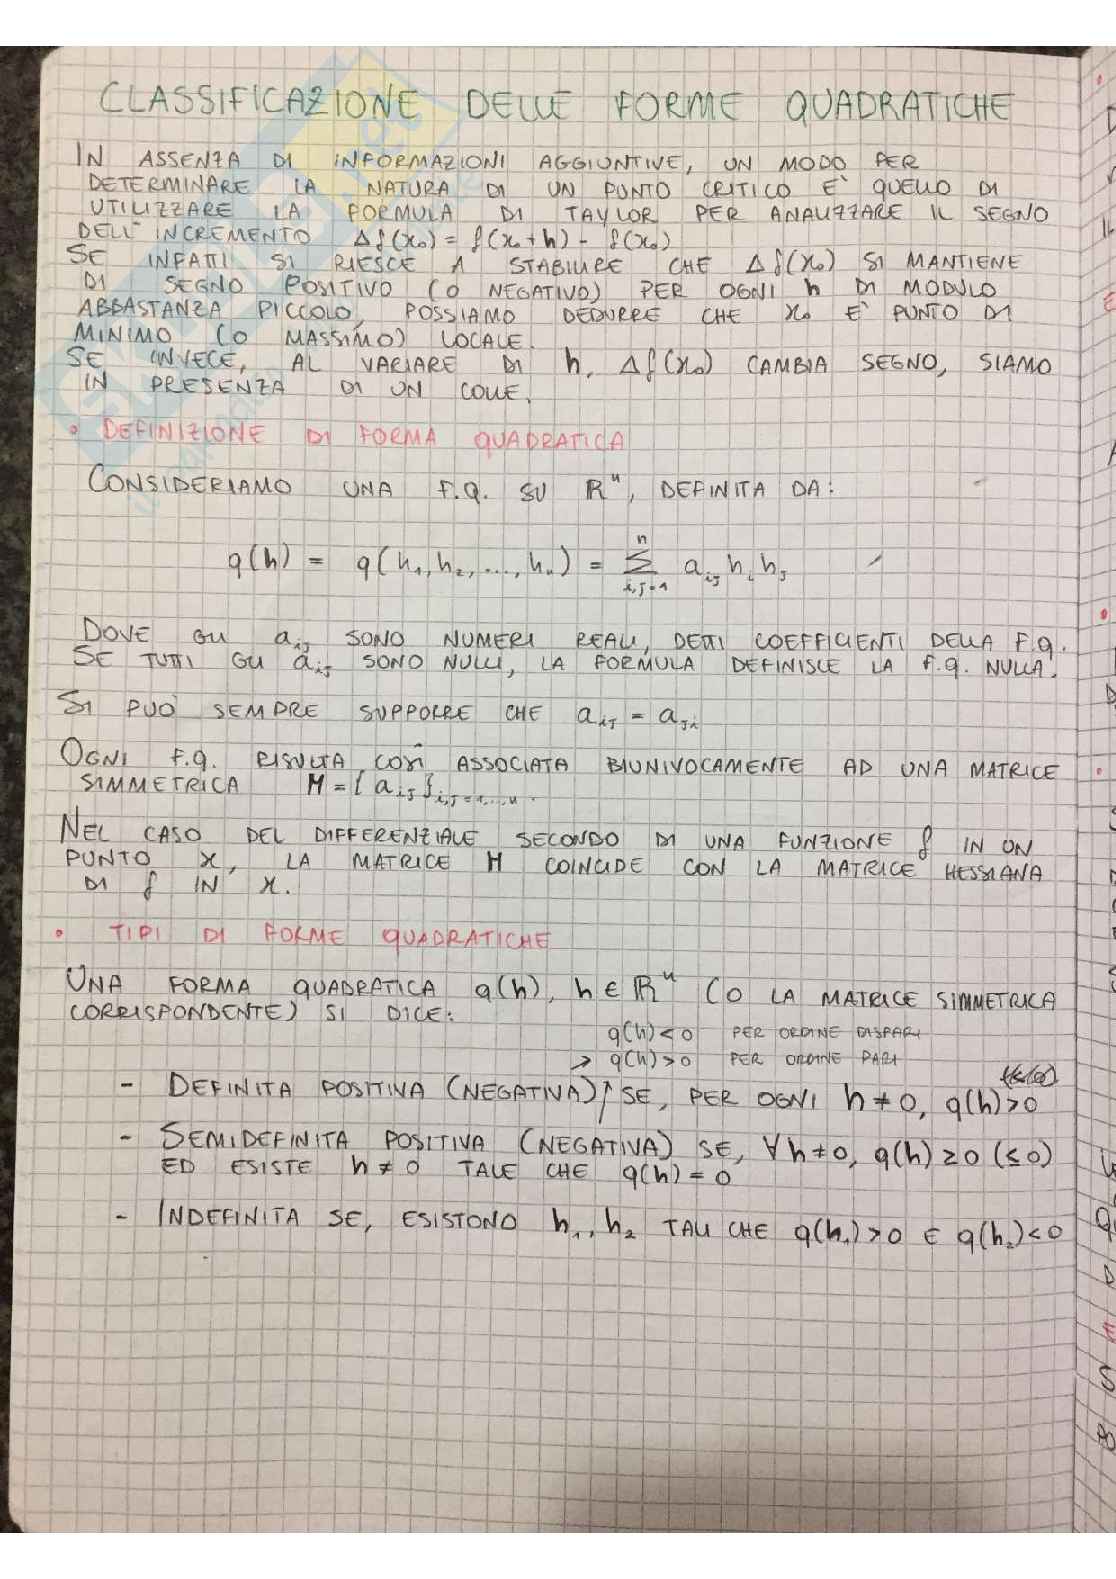 CLASSIFICAZIONE DELLE FORME QUADRATICHE
IN ASSENZA DI INFORMAZIONI AGGIUNTIVE, UN MODO PER
DETERMINARE LA NATURA DI UN PUNTO CRITICO E' QUELLO DI
UTILIZZARE LA FORMULA DI TAYLOR PER ANALIZZARE IL SEGNO
DELL'INCREMENTO Δf(x₀) = f(x₀+h) - f(x₀)
SE INFATTI SI RIESCE A STABILIRE CHE Δf(x₀) SI MANTIENE
DI SEGNO POSITIVO (O NEGATIVO) PER OGNI h DI MODULO
ABBASTANZA PICCOLO, POSSIAMO DEDURRE CHE x₀ E' PUNTO DI
MINIMO (O MASSIMO) LOCALE.
SE INVECE, AL VARIARE DI h, Δf(x₀) CAMBIA SEGNO, SIAMO
IN PRESENZA DI UN COLLE.
• DEFINIZIONE DI FORMA QUADRATICA
CONSIDERIAMO UNA F.Q. SU ℝⁿ, DEFINITA DA:
q(h) = q(h₁,h₂,...,hₙ) = Σⁿ i,j=1 aᵢⱼ hᵢ hⱼ
DOVE GLI aᵢⱼ SONO NUMERI REALI, DETTI COEFFICIENTI DELLA F.Q.
SE TUTTI GLI aᵢⱼ SONO NULLI, LA FORMULA DEFINISCE LA F.Q. NULLA.
SI PUÒ SEMPRE SUPPORRE CHE aᵢⱼ = aⱼᵢ
OGNI F.Q. RISULTA COSÌ ASSOCIATA BIUNIVOCAMENTE AD UNA MATRICE
SIMMETRICA M = { aᵢⱼ }i,j=1,...,n.
NEL CASO DEL DIFFERENZIALE SECONDO DI UNA FUNZIONE f IN UN
PUNTO x, LA MATRICE M COINCIDE CON LA MATRICE HESSIANA
DI f IN x.
• TIPI DI FORME QUADRATICHE
UNA FORMA QUADRATICA q(h), h ∈ ℝⁿ (O LA MATRICE SIMMETRICA
CORRISPONDENTE) SI DICE:
q(h)<0 PER ORDINE DISPARI
→ q(h)>0 PER ORDINE PARI
- DEFINITA POSITIVA (NEGATIVA)↑ SE, PER OGNI h≠0, q(h)>0
- SEMIDEFINITA POSITIVA (NEGATIVA) SE, ∀h≠0, q(h)≥0 (≤0)
ED ESISTE h≠0 TALE CHE q(h)=0
- INDEFINITA SE, ESISTONO h₁, h₂ TALI CHE q(h₁)>0 E q(h₂)<0